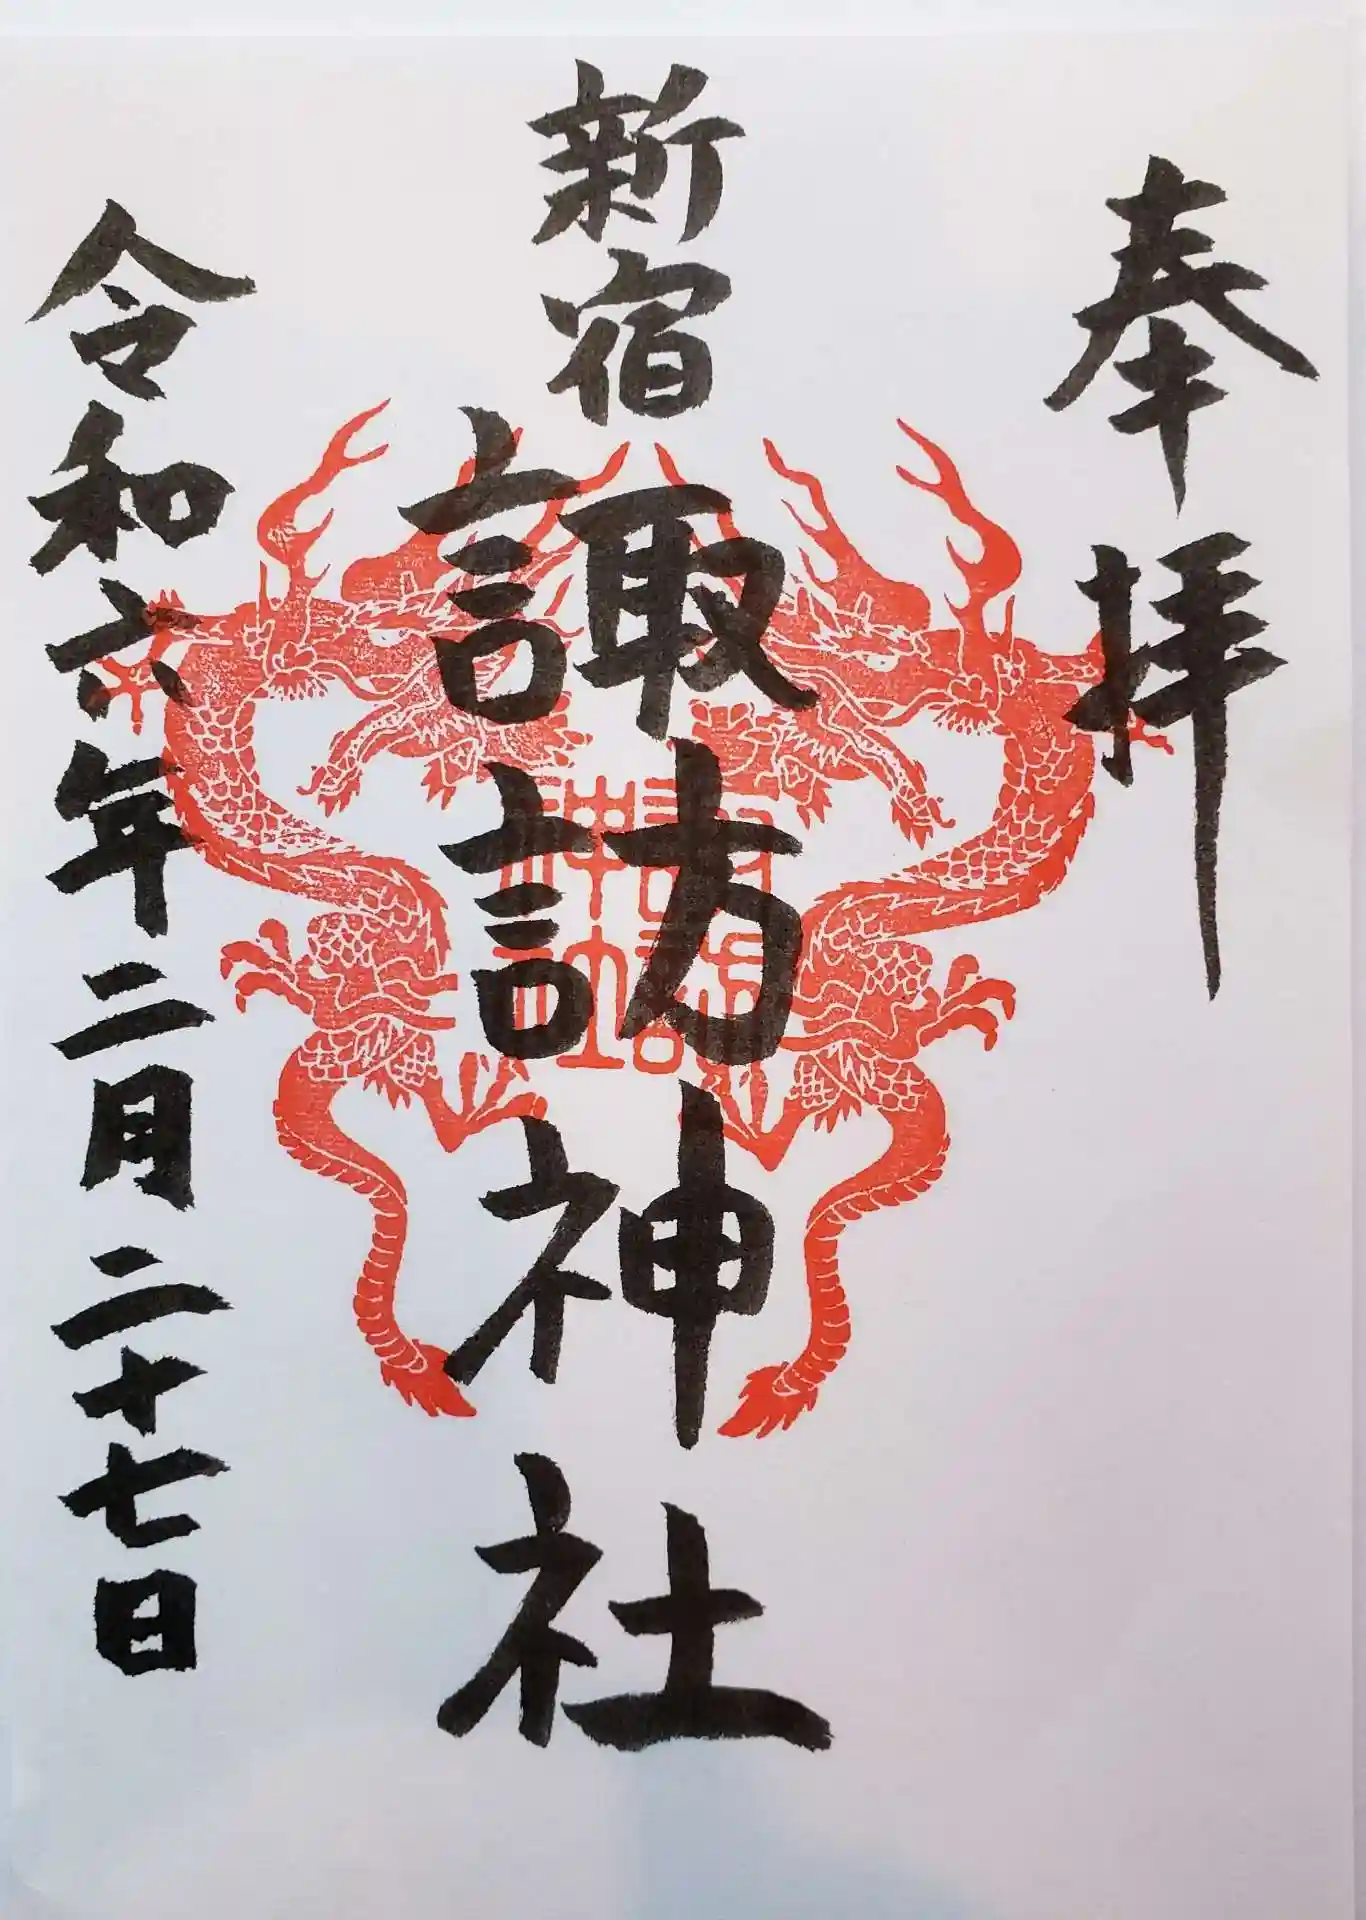 奉拝
新宿
諏訪神社
諏訪
神社
令和六年二月二十七日